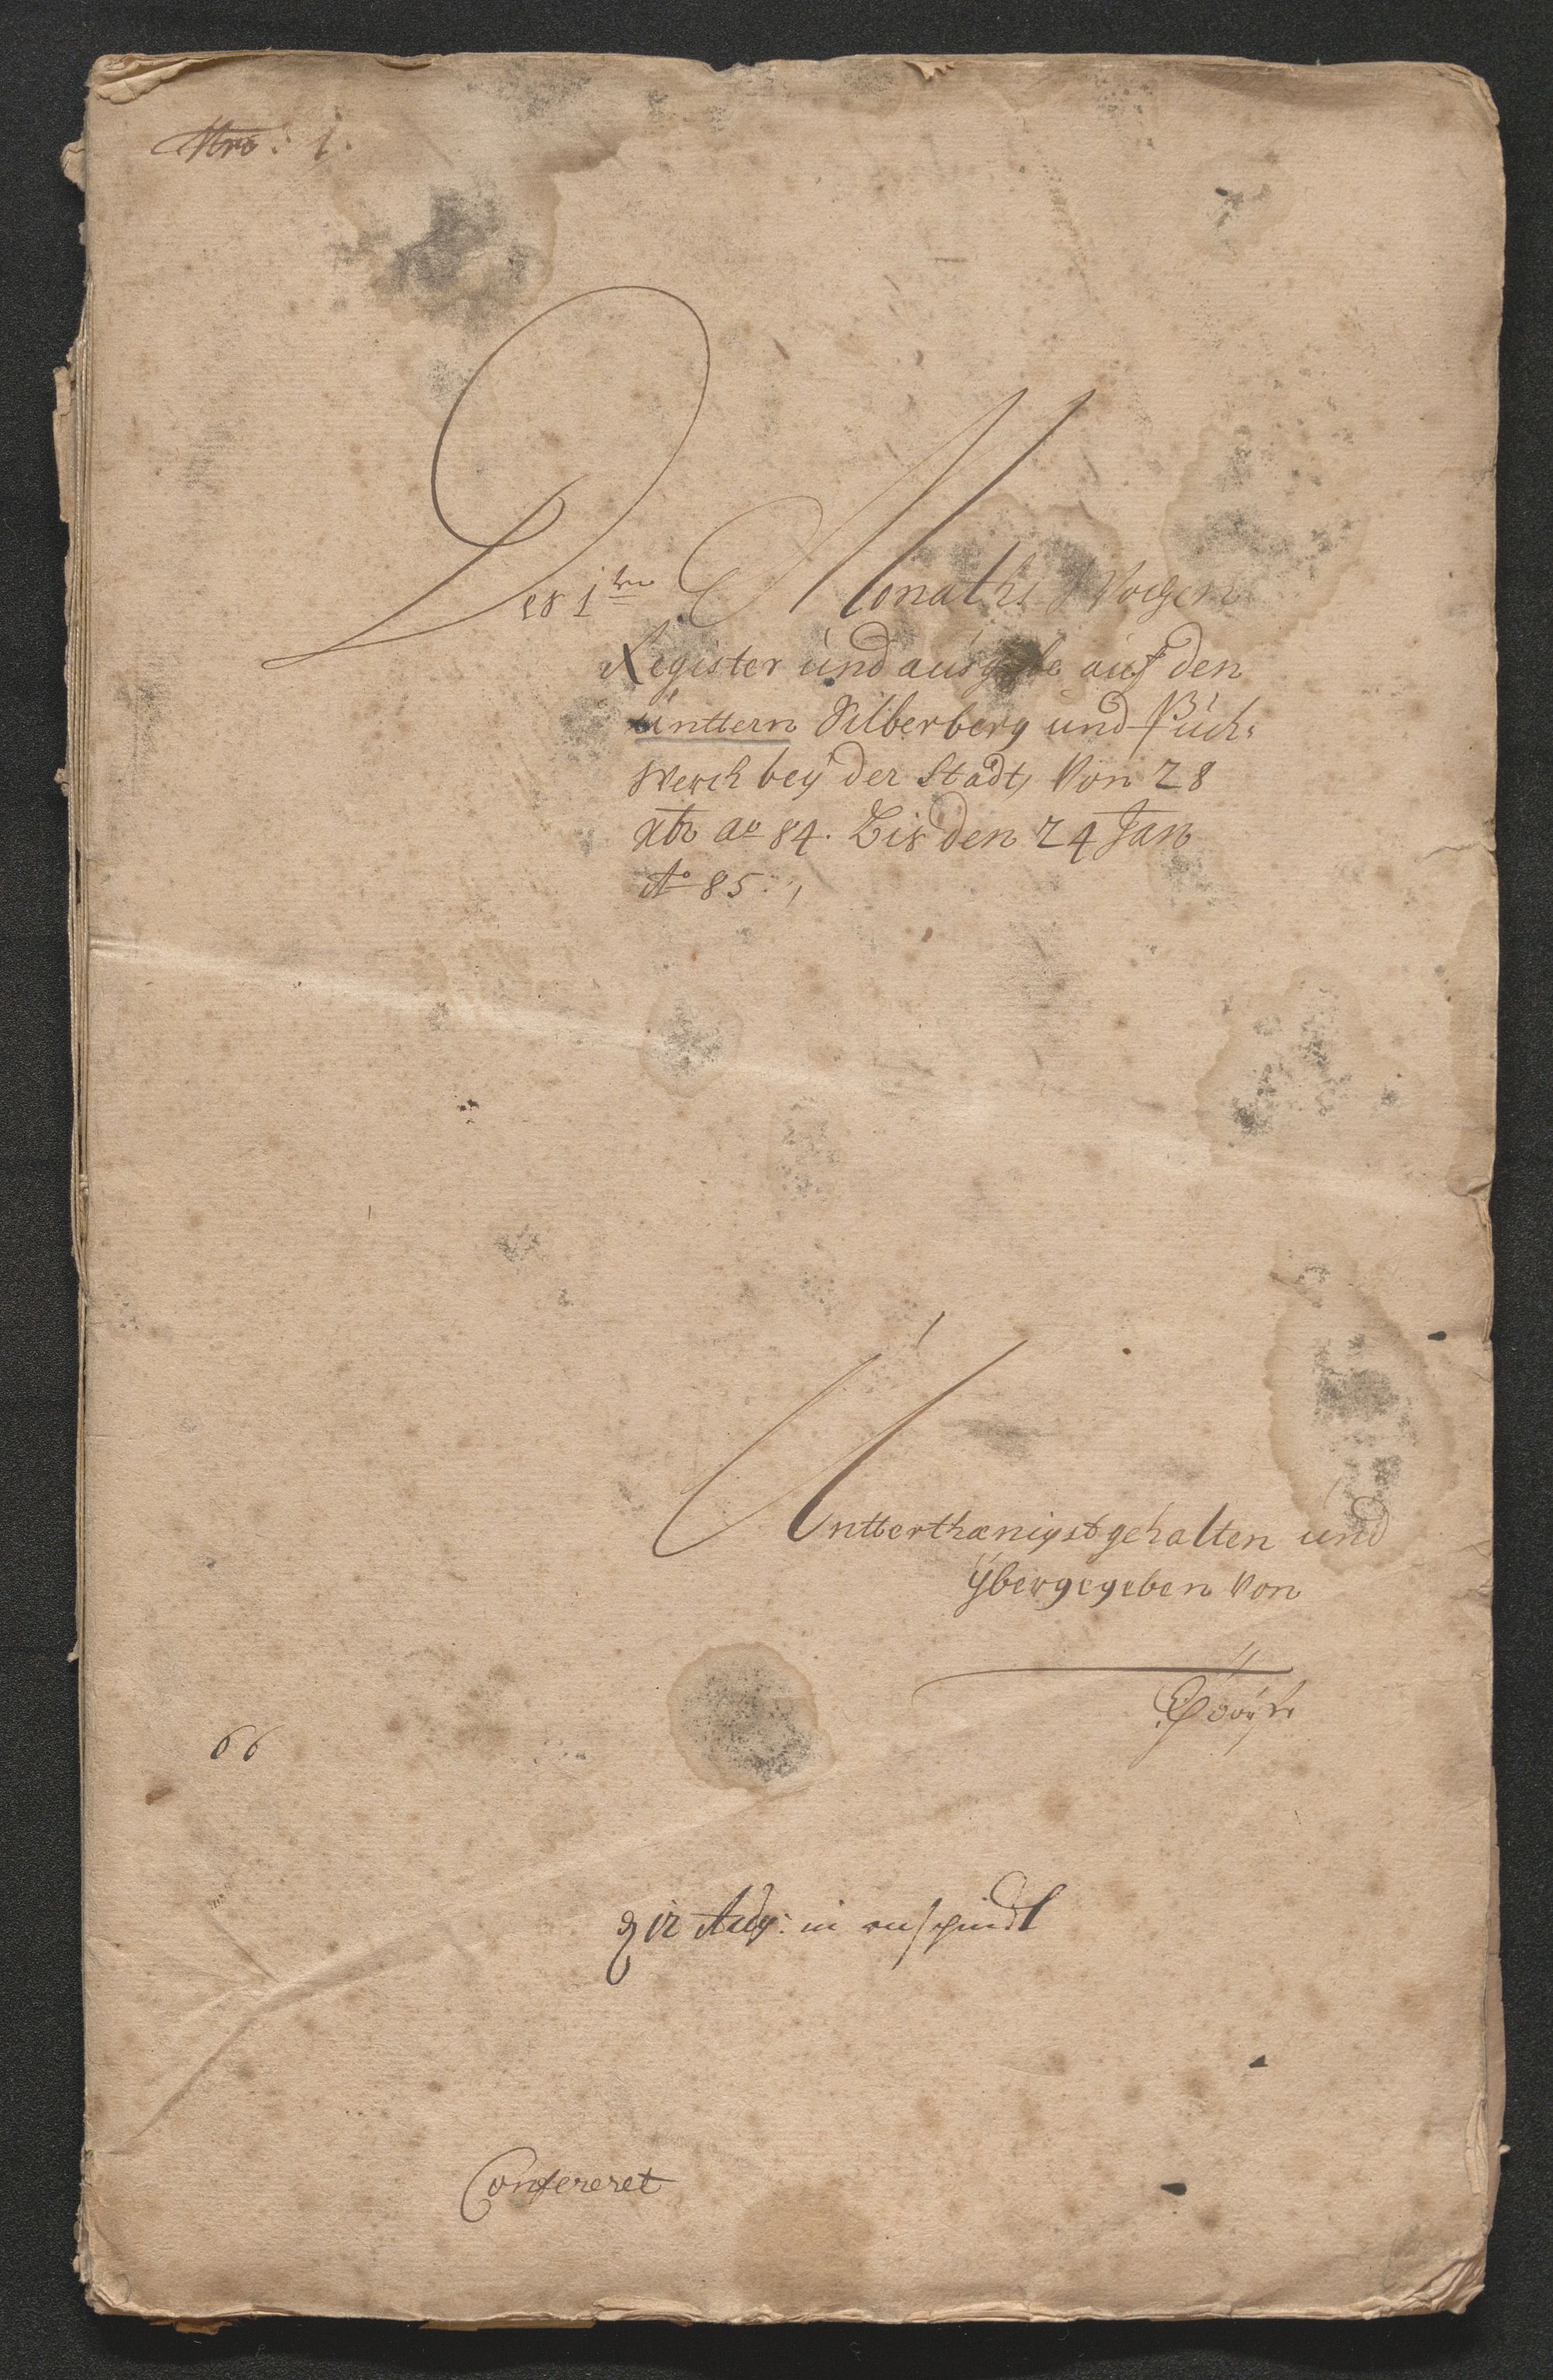 Nro: 1.
Des 1ten Monaths Wochen
Register und ausgabe auf den
Unttern Silberberg und Puch-
Werch bey der Stadt, Von 28
xbr ao 84. Bis den 24 Jan
Ao 85.,
Untterthænigst gehalten und
ÿbergegeben Von
66
Confereret